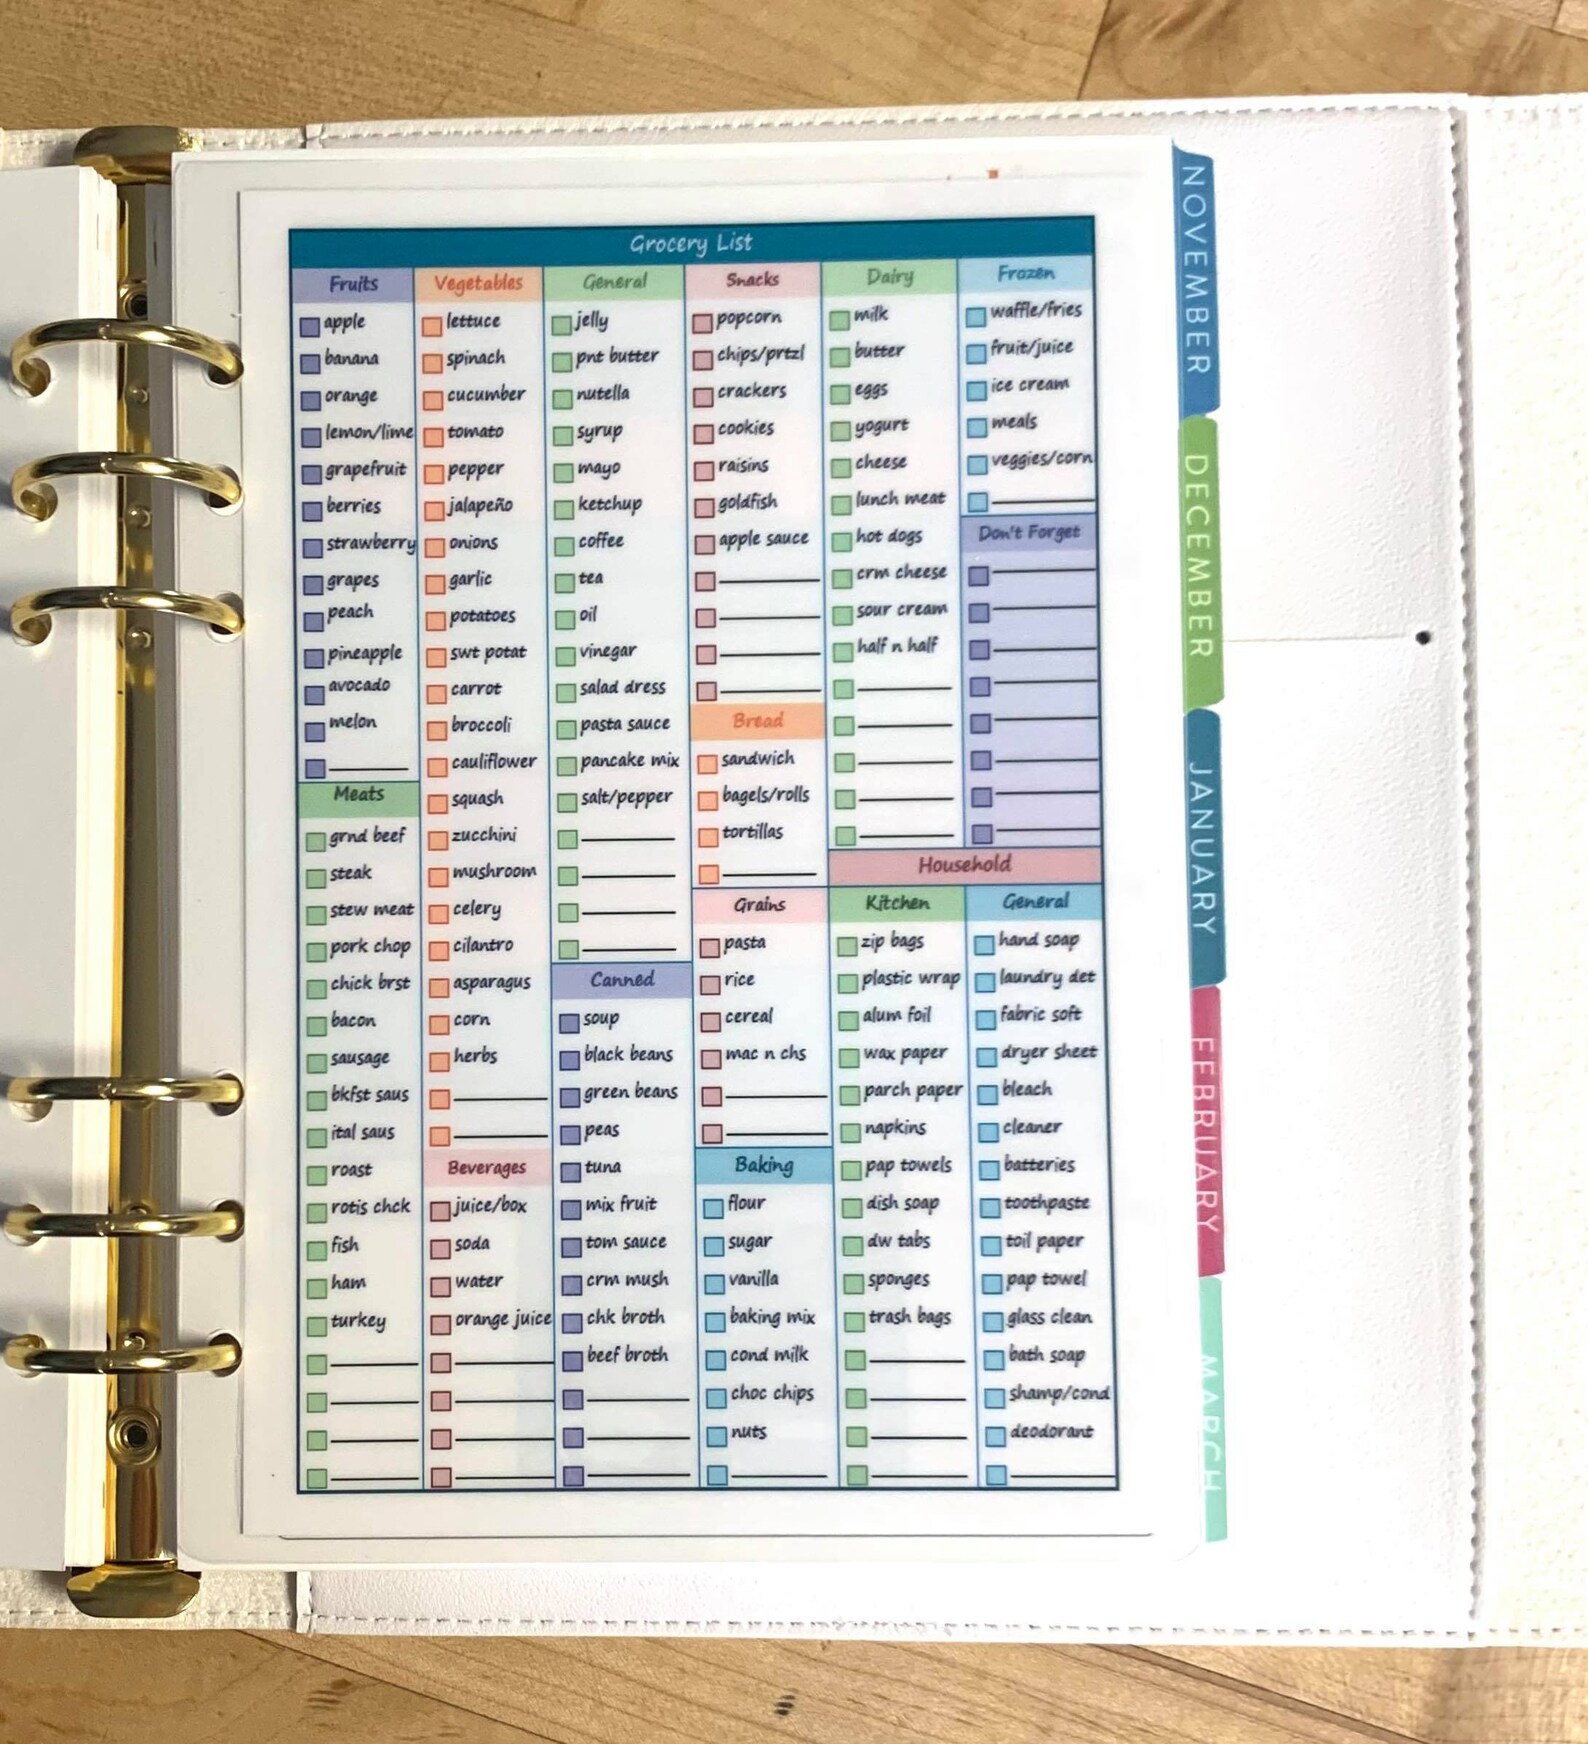 Grocery List
Fruits
apple
banana
orange
lemon/lime
grapefruit
berries
strawberry
grapes
peach
pineapple
avocado
melon
Meats
grnd beef
steak
stew meat
pork chop
chick brst
bacon
sausage
bkfst saus
ital saus
roast
rotis chck
fish
ham
turkey
Vegetables
lettuce
spinach
cucumber
tomato
pepper
jalapeño
onions
garlic
potatoes
swt potat
carrot
broccoli
cauliflower
squash
zucchini
mushroom
celery
cilantro
asparagus
corn
herbs
Beverages
juice/box
soda
water
orange juice
General
jelly
pnt butter
nutella
syrup
mayo
ketchup
coffee
tea
oil
vinegar
salad dress
pasta sauce
pancake mix
salt/pepper
Canned
soup
black beans
green beans
peas
tuna
mix fruit
tom sauce
crm mush
chk broth
beef broth
Snacks
popcorn
chips/prtzl
crackers
cookies
raisins
goldfish
apple sauce
Bread
sandwich
bagels/rolls
tortillas
Grains
pasta
rice
cereal
mac n chs
Baking
flour
sugar
vanilla
baking mix
cond milk
choc chips
nuts
Dairy
milk
butter
eggs
yogurt
cheese
lunch meat
hot dogs
crm cheese
sour cream
half n half
Frozen
waffle/fries
fruit/juice
ice cream
meals
veggies/corn
Don't Forget
Household
Kitchen
zip bags
plastic wrap
alum foil
wax paper
parch paper
napkins
pap towels
dish soap
dw tabs
sponges
trash bags
General
hand soap
laundry det
fabric soft
dryer sheet
bleach
cleaner
batteries
toothpaste
toil paper
pap towel
glass clean
bath soap
shamp/cond
deodorant
NOVEMBER
DECEMBER
JANUARY
FEBRUARY
MARCH